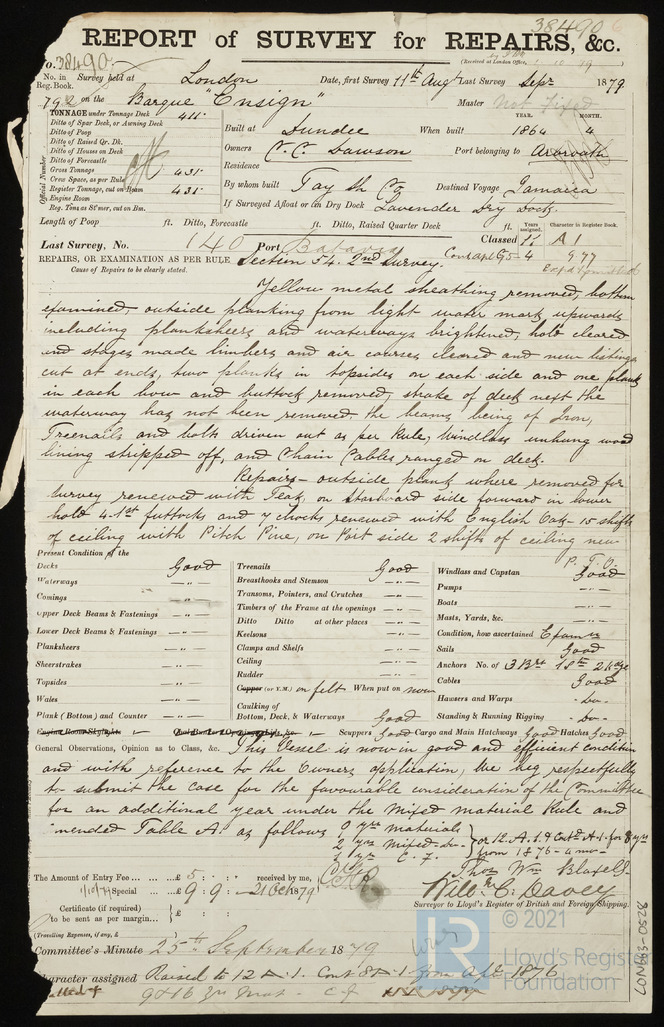 38490
REPORT of SURVEY for REPAIRS, &c.
No. 38490
(Received at London Office,
No. in Reg. Book. Survey held at London Date, first Survey 11th Augt Last Survey Sepr 1879
792 on the Barque "Ensign" Master Not Fixed
TONNAGE under Tonnage Deck 411
Ditto of Spar Deck, or Awning Deck
Ditto of Poop
Ditto of Raised Qr. Dk.
Ditto of Houses on Deck
Ditto of Forecastle
Gross Tonnage 431
Crew Space, as per Rule
Register Tonnage, cut on Beam 431
Engine Room
Reg. Tons as St'mer, cut on Bm.
Official Number
Built at Dundee When built YEAR. 1864 MONTH. 4
Owners C. C. Dawson Port belonging to Arbroath
Residence
By whom built Tay Sh Co Destined Voyage Jamaica
If Surveyed Afloat or in Dry Dock Lavender Dry Dock.
Length of Poop ft. Ditto, Forecastle ft. Ditto, Raised Quarter Deck ft. Years assigned. Character in Register Book.
Last Survey, No. 140 Port Batavia Classed 11 A1
REPAIRS, OR EXAMINATION AS PER RULE Section 54. 2nd Survey. 9.77
Cause of Repairs to be clearly stated.
Yellow metal sheathing removed, bottom
examined, outside planking from light water mark upwards
including plansheers and waterways brightened, hold cleared
and stages made limbers and air courses cleared and new listings
cut at ends, two planks in topsides on each side and one plank
in each bow and buttock removed, strake of deck next the
waterway has not been removed, the beams being of Iron,
Treenails and bolts driven out as per Rule, Windlass unhung wood
lining stripped off, and Chain Cables ranged on deck.
Repairs - outside plank where removed for
survey renewed with Teak, on starboard side forward in lower
hold 4-1st futtocks and 7 chocks renewed with English Oak - 15 shifts
of ceiling with Pitch Pine, on Port side 2 shifts of ceiling new
P. T. O.
Present Condition of the
Decks Good
Waterways - " -
Comings - " -
Upper Deck Beams & Fastenings - " -
Lower Deck Beams & Fastenings - " -
Planksheers - " -
Sheerstrakes - " -
Topsides - " -
Wales - " -
Plank (Bottom) and Counter - " -
Treenails Good
Breasthooks and Stemson - " -
Transoms, Pointers, and Crutches - " -
Timbers of the Frame at the openings - " -
Ditto Ditto at other places - " -
Keelsons - " -
Clamps and Shelfs - " -
Ceiling - " -
Rudder - " -
Copper (or Y.M.) on felt When put on now
Caulking of
Bottom, Deck, & Waterways Good
Windlass and Capstan Good
Pumps - " -
Boats - " -
Masts, Yards, &c. - " -
Condition, how ascertained Examn
Sails Good
Anchors No. of 3 Br 1 St 2 Kedge
Cables Good
Hawsers and Warps - Do -
Standing & Running Rigging - Do -
Engine Room Skylights Scuppers Good Cargo and Main Hatchways Good Hatches Good
General Observations, Opinion as to Class, &c. This Vessel is now in good and efficient condition
and with reference to the Owners application, We beg respectfully
to submit the case for the favourable consideration of the Committee
for an additional year under the Mixed material Rule and
amended Table A. as follows 9 yrs materials
2 yrs Mixed do or 12. A.1. & Contd A.1. for 8 yrs
1 yr C. F. from 1876 - 4 mo
Thos Wm Blaxell
Will. C. Davey
Surveyor to Lloyd's Register of British and Foreign Shipping.
The Amount of Entry Fee ... ...£ 5 : : received by me,
Special ... ...£ 9 : 9 : - 21 Oct 1879
Certificate (if required)
to be sent as per margin... £ : :
(Travelling Expenses, if any, £
Committee's Minute 25th September 1879
Character assigned Raised to 12 A. 1. Cont 8 A. 1 from Apl 1876
© 2021
LR
Lloyd's Register
Foundation
LON863-0528